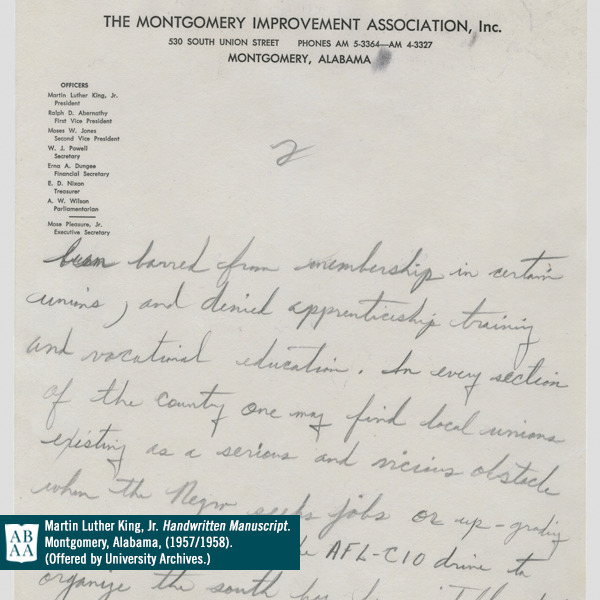 THE MONTGOMERY IMPROVEMENT ASSOCIATION, Inc.
530 SOUTH UNION STREET PHONES AM 5-3364—AM 4-3327
MONTGOMERY, ALABAMA
OFFICERS
Martin Luther King, Jr.
President
Ralph D. Abernathy
First Vice President
Moses W. Jones
Second Vice President
W. J. Powell
Secretary
Erna A. Dungee
Financial Secretary
E. D. Nixon
Treasurer
A. W. Wilson
Parliamentarian
Mose Pleasure, Jr.
Executive Secretary
2
been barred from membership in certain
unions, and denied apprenticeship training
and vocational education. In every section
of the county one may find local unions
existing as a serious and vicious obstacle
when the Negro seeks jobs or up-grading
AFL-CIO drive to
organize the south
AB
AA
Martin Luther King, Jr. Handwritten Manuscript.
Montgomery, Alabama, (1957/1958).
(Offered by University Archives.)